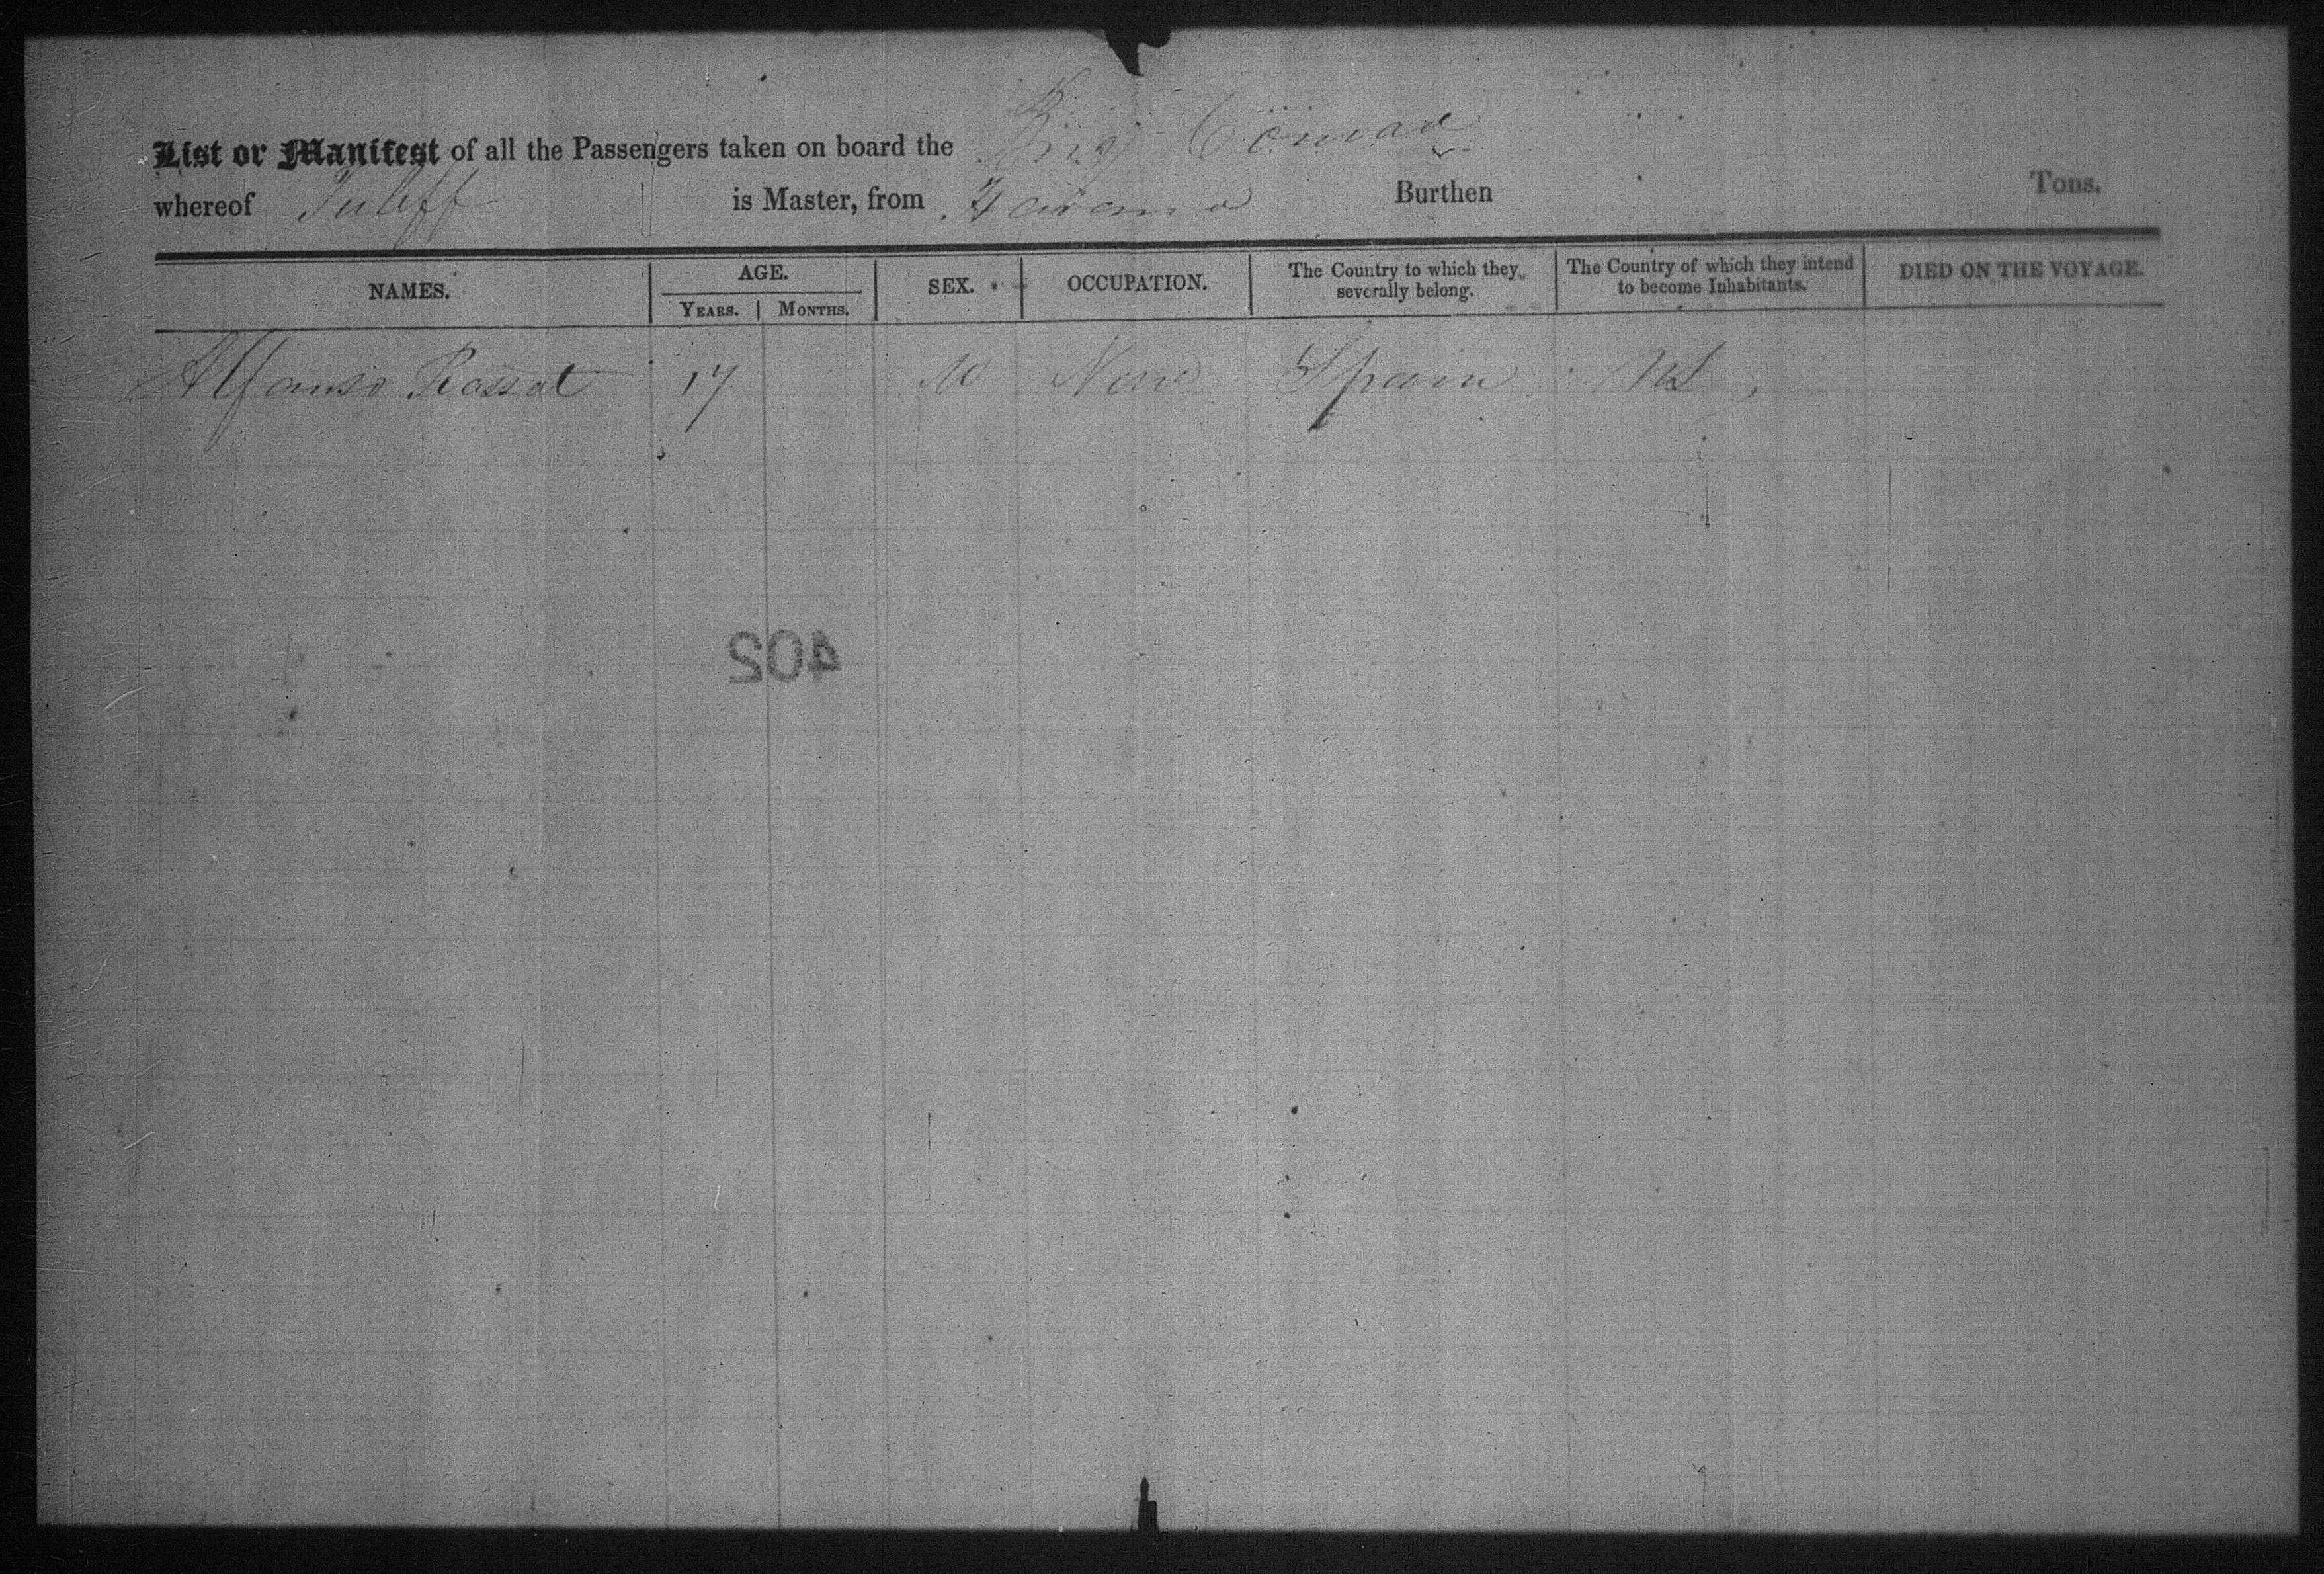 List or Manifest of all the Passengers taken on board the Brig Conrad
whereof is Master, from Havana Burthen Tons.
NAMES. AGE. YEARS. MONTHS. SEX. OCCUPATION. The Country to which they severally belong. The Country of which they intend to become Inhabitants. DIED ON THE VOYAGE.
Alfonso Rossat 17 M None Spain US
402